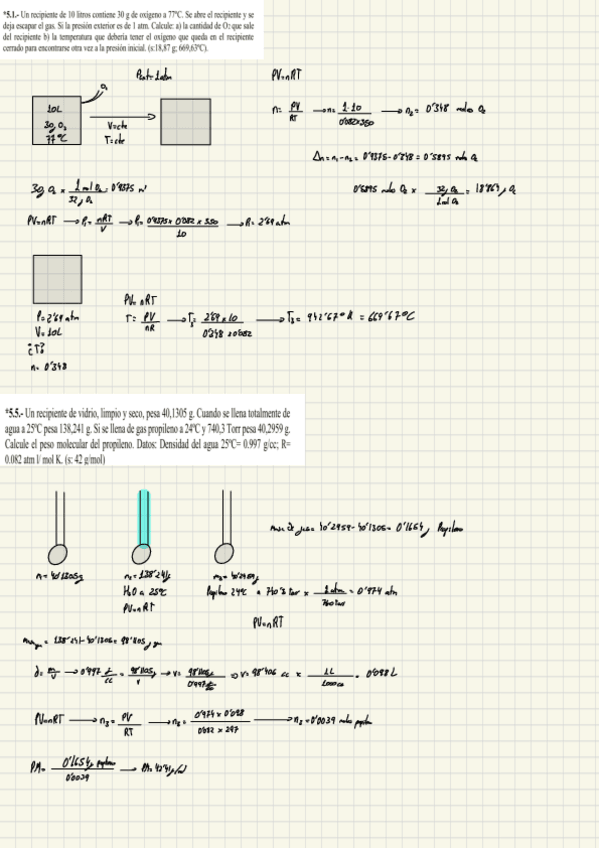 *5.1.- Un recipiente de 10 litros contiene 30 g de oxígeno a 77ºC. Se abre el recipiente y se
deja escapar el gas. Si la presión exterior es de 1 atm. Calcule: a) la cantidad de O₂ que sale
del recipiente b) la temperatura que debería tener el oxígeno que queda en el recipiente
cerrado para encontrarse otra vez a la presión inicial. (s:18,87 g; 669,63ºC).
Pext = 1 atm
PV=nRT
O₂
10L
30g O₂
77ºC
V=cte
T=cte
n = PV/RT → n = 1·10/0'082×350 → n₂ = 0'348 moles O₂
Δn = n₁-n₂ = 0'9375-0'348 = 0'5895 mols O₂
30g O₂ × 1 mol O₂/32g O₂ = 0'9375 M
0'5895 mols O₂ × 32g O₂/1 mol O₂ = 18'864g O₂
PV=nRT → P₁ = nRT/V → P₁ = 0'9375×0'082×350/10 → P₁ = 2'69 atm
P=2'69 atm
V=10L
¿T?
n=0'348
PV=nRT
T = PV/nR → T₃ = 2'69×10/0'348×0'082 → T₃ = 942'67ºK = 669'67ºC
*5.5.- Un recipiente de vidrio, limpio y seco, pesa 40,1305 g. Cuando se llena totalmente de
agua a 25ºC pesa 138,241 g. Si se llena de gas propileno a 24ºC y 740,3 Torr pesa 40,2959 g.
Calcule el peso molecular del propileno. Datos: Densidad del agua 25ºC= 0.997 g/cc; R=
0.082 atm l/ mol K. (s: 42 g/mol)
masa de gas = 40'2959-40'1305 = 0'1654g Propileno
m₁=40'1305g
m₂=138'241g
m₃=40'2959g
H₂O a 25ºC
Propileno 24ºC a 740'3 torr × 1 atm/760 torr = 0'974 atm
PV=nRT
PV=nRT
= 138'241-40'1305 = 98'1105g
d = m/V → 0'997 g/cc = 98'1105g/V → V = 98'1105g/0'997 g/cc → V = 98'406 cc × 1L/1000cc = 0'098L
PV=nRT → n₃ = PV/RT → n₃ = 0'974×0'098/0'082×297 → n₃ = 0'0039 moles
PM = 0'1654g/0'0039 → PM = 42'41g/mol